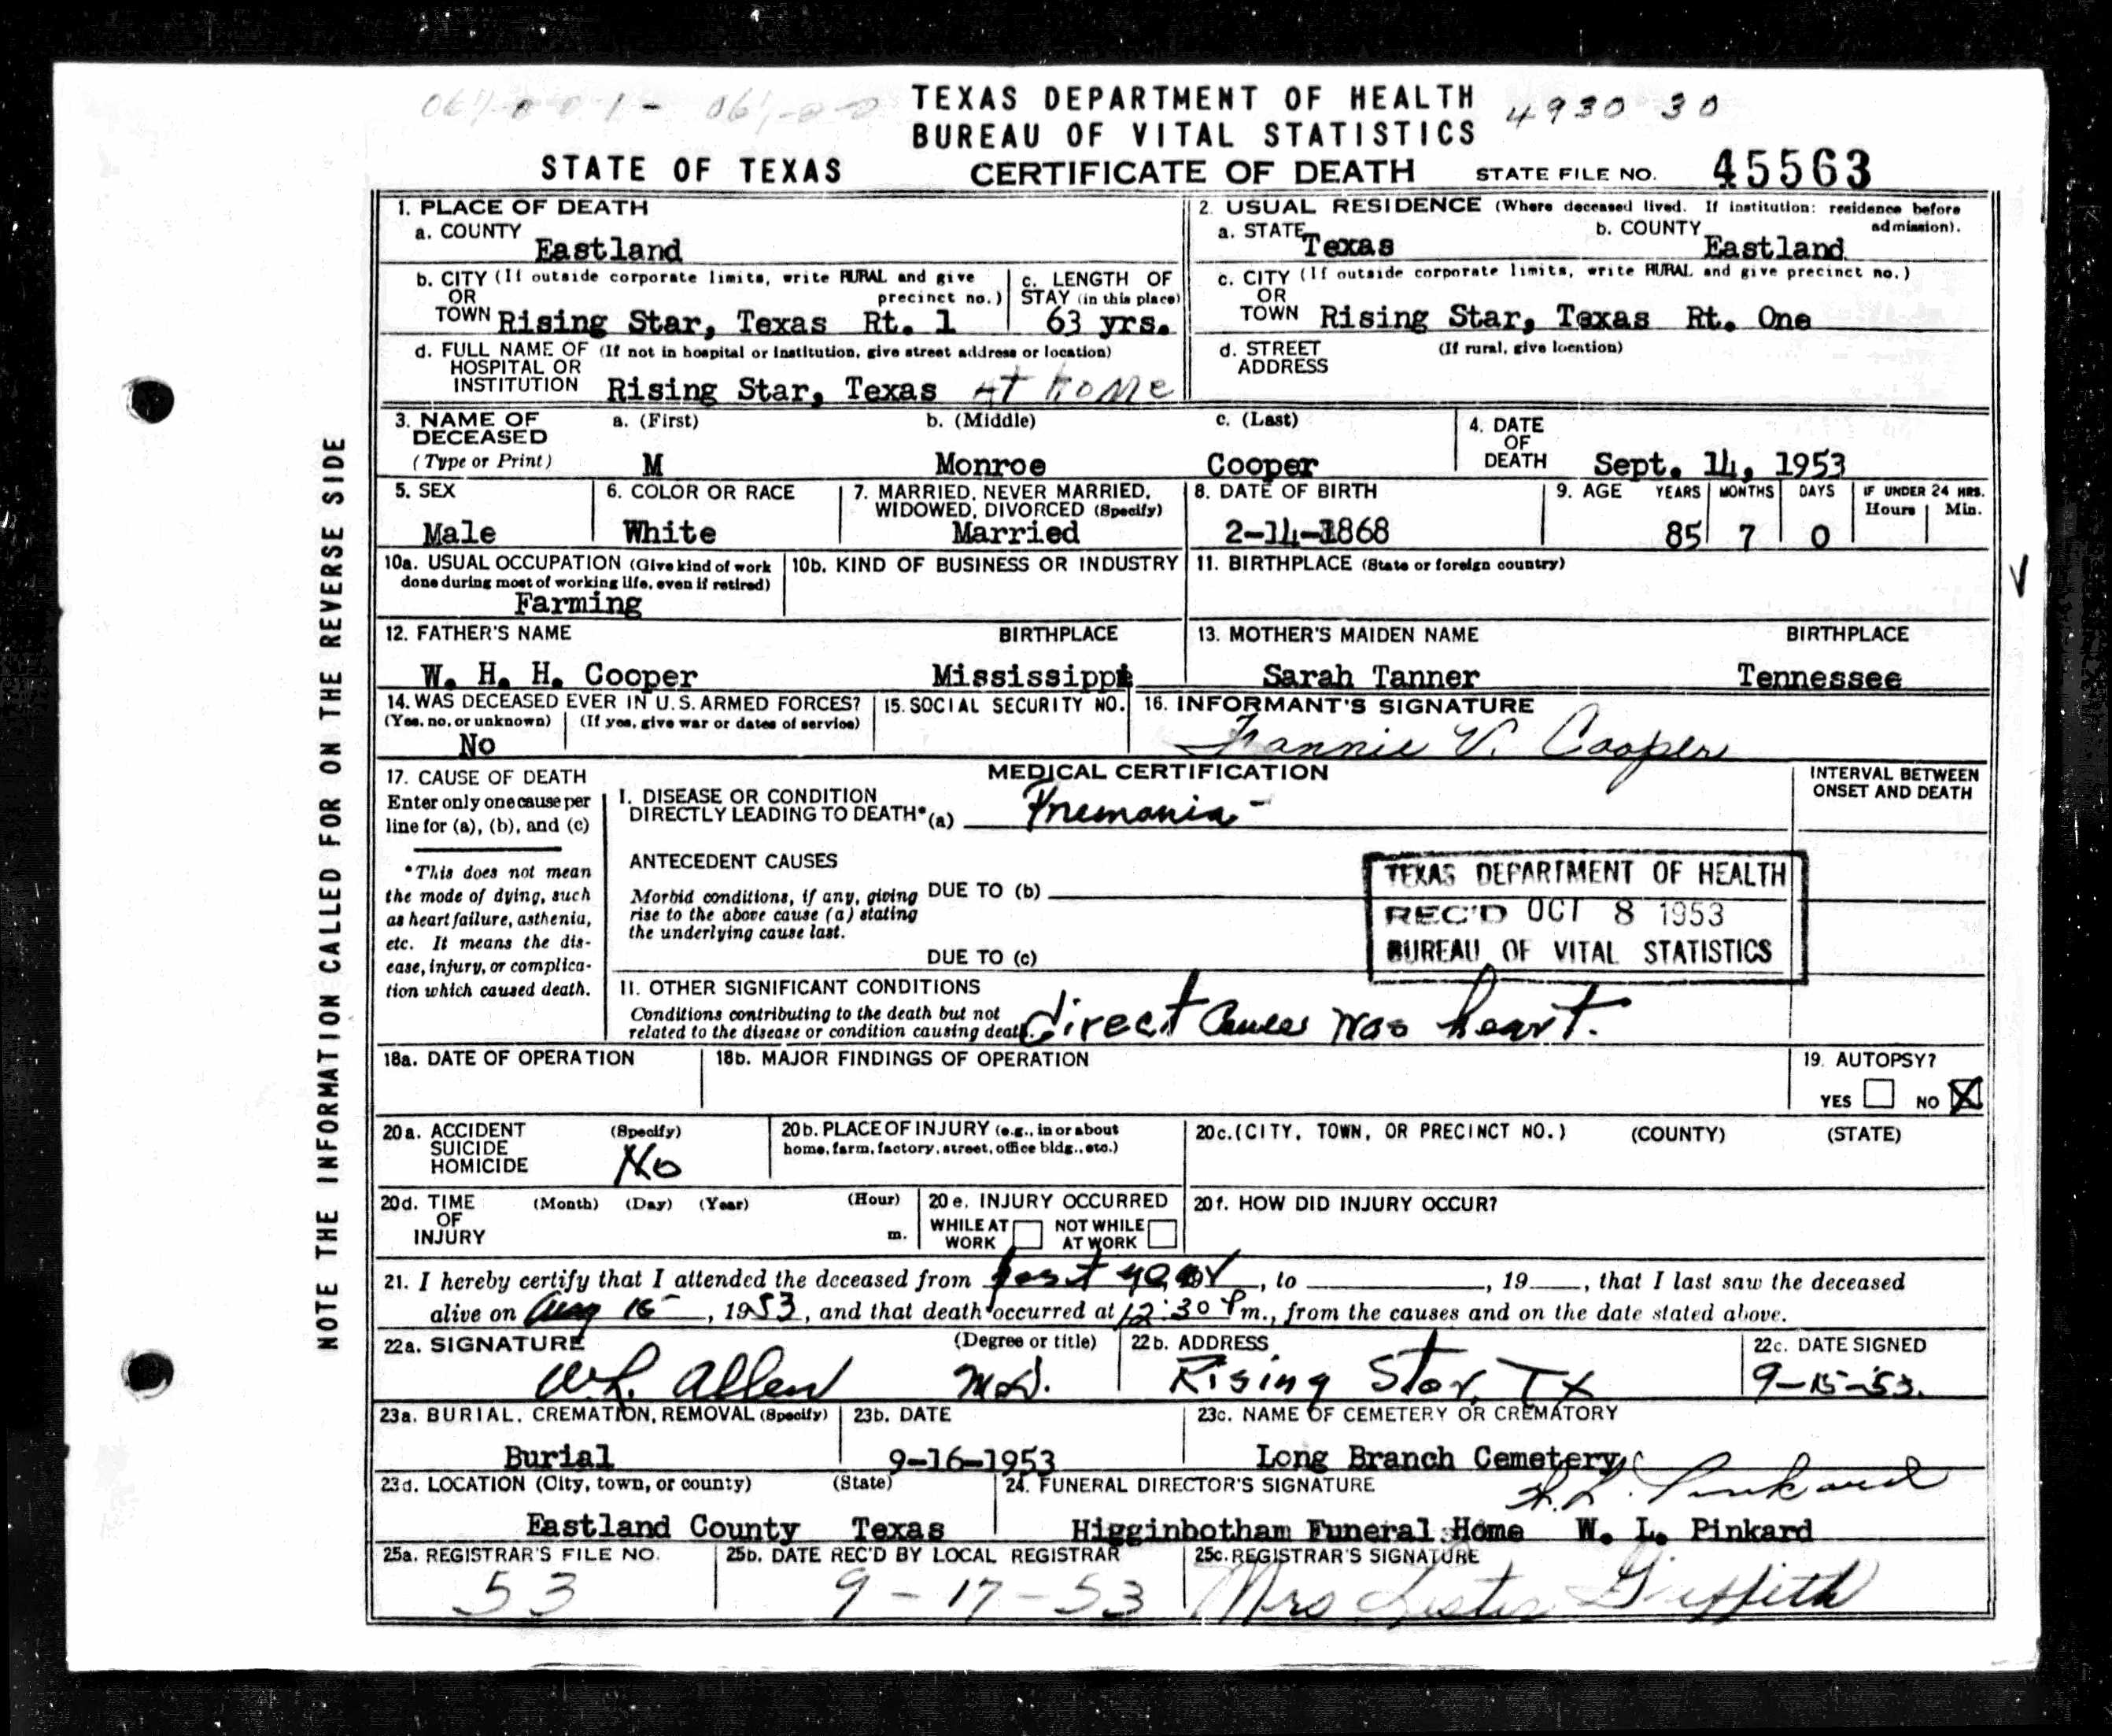 TEXAS DEPARTMENT OF HEALTH
4930 30
BUREAU OF VITAL STATISTICS
STATE OF TEXAS CERTIFICATE OF DEATH STATE FILE NO. 45563
NOTE THE INFORMATION CALLED FOR ON THE REVERSE SIDE
1. PLACE OF DEATH
a. COUNTY
Eastland
2. USUAL RESIDENCE (Where deceased lived. If institution: residence before admission).
a. STATE Texas b. COUNTY Eastland
b. CITY (If outside corporate limits, write RURAL and give precinct no.)
OR
TOWN Rising Star, Texas Rt. 1
c. LENGTH OF
STAY (in this place)
63 yrs.
c. CITY (If outside corporate limits, write RURAL and give precinct no.)
OR
TOWN Rising Star, Texas Rt. One
d. FULL NAME OF (If not in hospital or institution, give street address or location)
HOSPITAL OR
INSTITUTION Rising Star, Texas At home
d. STREET (If rural, give location)
ADDRESS
3. NAME OF a. (First) b. (Middle) c. (Last)
DECEASED
(Type or Print) M Monroe Cooper
4. DATE
OF
DEATH Sept. 14, 1953
5. SEX
Male
6. COLOR OR RACE
White
7. MARRIED, NEVER MARRIED,
WIDOWED, DIVORCED (Specify)
Married
8. DATE OF BIRTH
2-14-1868
9. AGE YEARS MONTHS DAYS IF UNDER 24 HRS.
Hours Min.
85 7 0
10a. USUAL OCCUPATION (Give kind of work
done during most of working life, even if retired)
Farming
10b. KIND OF BUSINESS OR INDUSTRY
11. BIRTHPLACE (State or foreign country)
12. FATHER'S NAME BIRTHPLACE
W. H. H. Cooper Mississippi
13. MOTHER'S MAIDEN NAME BIRTHPLACE
Sarah Tanner Tennessee
14. WAS DECEASED EVER IN U.S. ARMED FORCES?
(Yes, no, or unknown) (If yes, give war or dates of service)
No
15. SOCIAL SECURITY NO.
16. INFORMANT'S SIGNATURE
Fannie V. Cooper
17. CAUSE OF DEATH
Enter only one cause per
line for (a), (b), and (c)
*This does not mean
the mode of dying, such
as heart failure, asthenia,
etc. It means the dis-
ease, injury, or complica-
tion which caused death.
MEDICAL CERTIFICATION
INTERVAL BETWEEN
ONSET AND DEATH
I. DISEASE OR CONDITION
DIRECTLY LEADING TO DEATH* (a) Pnemonia-
ANTECEDENT CAUSES
Morbid conditions, if any, giving DUE TO (b)
rise to the above cause (a) stating
the underlying cause last.
DUE TO (c)
TEXAS DEPARTMENT OF HEALTH
REC'D OCT 8 1953
BUREAU OF VITAL STATISTICS
II. OTHER SIGNIFICANT CONDITIONS
Conditions contributing to the death but not
related to the disease or condition causing death. direct cause was heart.
18a. DATE OF OPERATION
18b. MAJOR FINDINGS OF OPERATION
19. AUTOPSY?
YES NO X
20a. ACCIDENT (Specify)
SUICIDE
HOMICIDE No
20b. PLACE OF INJURY (e.g., in or about
home, farm, factory, street, office bldg., etc.)
20c. (CITY, TOWN, OR PRECINCT NO.) (COUNTY) (STATE)
20d. TIME (Month) (Day) (Year) (Hour)
OF
INJURY m.
20e. INJURY OCCURRED
WHILE AT WORK NOT WHILE AT WORK
20f. HOW DID INJURY OCCUR?
21. I hereby certify that I attended the deceased from past year, to , 19 , that I last saw the deceased
alive on Aug 15, 1953, and that death occurred at 12:30 P m., from the causes and on the date stated above.
22a. SIGNATURE (Degree or title)
W.L. Allen M.D.
22b. ADDRESS
Rising Star, Tx
22c. DATE SIGNED
9-15-53.
23a. BURIAL, CREMATION, REMOVAL (Specify)
Burial
23b. DATE
9-16-1953
23c. NAME OF CEMETERY OR CREMATORY
Long Branch Cemetery
23d. LOCATION (City, town, or county) (State)
Eastland County Texas
24. FUNERAL DIRECTOR'S SIGNATURE
W. L. Pinkard
Higginbotham Funeral Home W. L. Pinkard
25a. REGISTRAR'S FILE NO.
53
25b. DATE REC'D BY LOCAL REGISTRAR
9-17-53
25c. REGISTRAR'S SIGNATURE
Mrs Lester Griffith